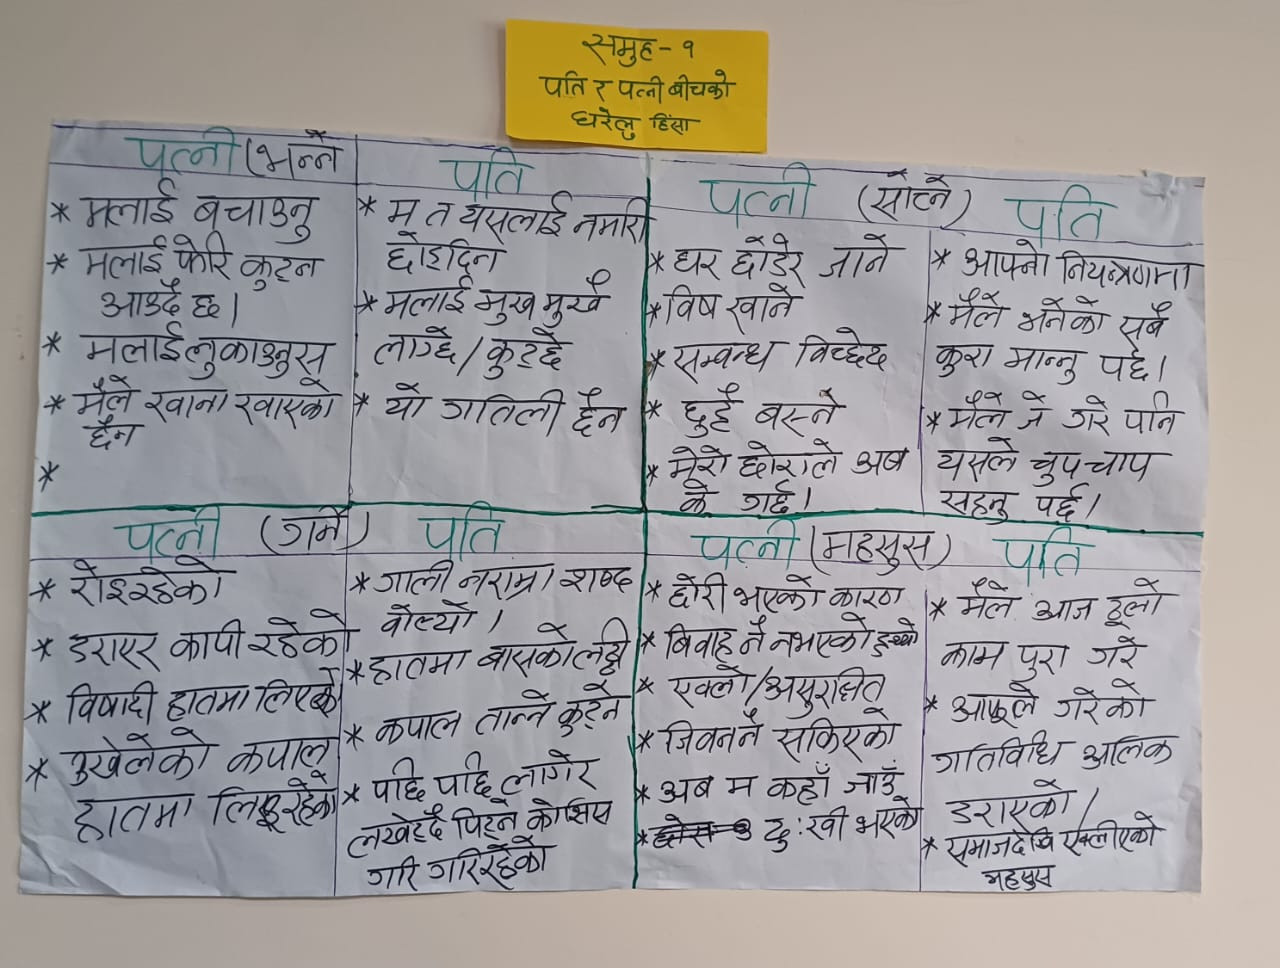 समुह - १
पति र पत्नी बीचको
घरेलु हिंसा
पत्नी (भन्ने
* मलाई बचाउनु
* मलाई फेरि कुट्न
आउदै छ।
* मलाई लुकाउनुस
* मैले खाना खाएको
छैन
*
पति
* म त यसलाई नमारी
छोड्दिन
* मलाई मुख मुखै
लाग्छे / कुट्छे
* यो गतिली छैन
पत्नी (सोच्ने)
* घर छोडेर जाने
* विष खाने
* सम्बन्ध विच्छेद
* छुट्टै बस्ने
* मेरो छोराले अब
के गर्छ।
पति
* आफ्नो नियन्त्रणमा
* मैले भनेको सबै
कुरा मान्नु पर्छ।
* मैले जे गरे पनि
यसले चुपचाप
सहनु पर्छ।
पत्नी (गर्ने)
* रोइरहेको
* डराएर कापी रहेको
* विषादी हातमा लिएको
* उखेलेको कपाल
हातमा लिइरहेको
पति
* गाली नराम्रा शब्द
बोल्यो ।
* हातमा बासको लठ्ठी
* कपाल तान्ने कुट्ने
* पछि पछि लागेर
लखेट्दै पिट्ने कोसिस
गरि गरिरहेको
पत्नी (महसुस)
* छोरी भएको कारण
* बिवाह नै नभएको हुन्थ्यो
* एक्लो/असुरक्षित
* जिवननै सकिएको
* अब म कहाँ जाउँ
* दुःखी भएको
पति
* मैले आज ठूलो
काम पुरा गरे
* आफूले गरेको
गतिविधि अलिक
डराएको /
* समाजदेखि एक्लीएको
महसुस